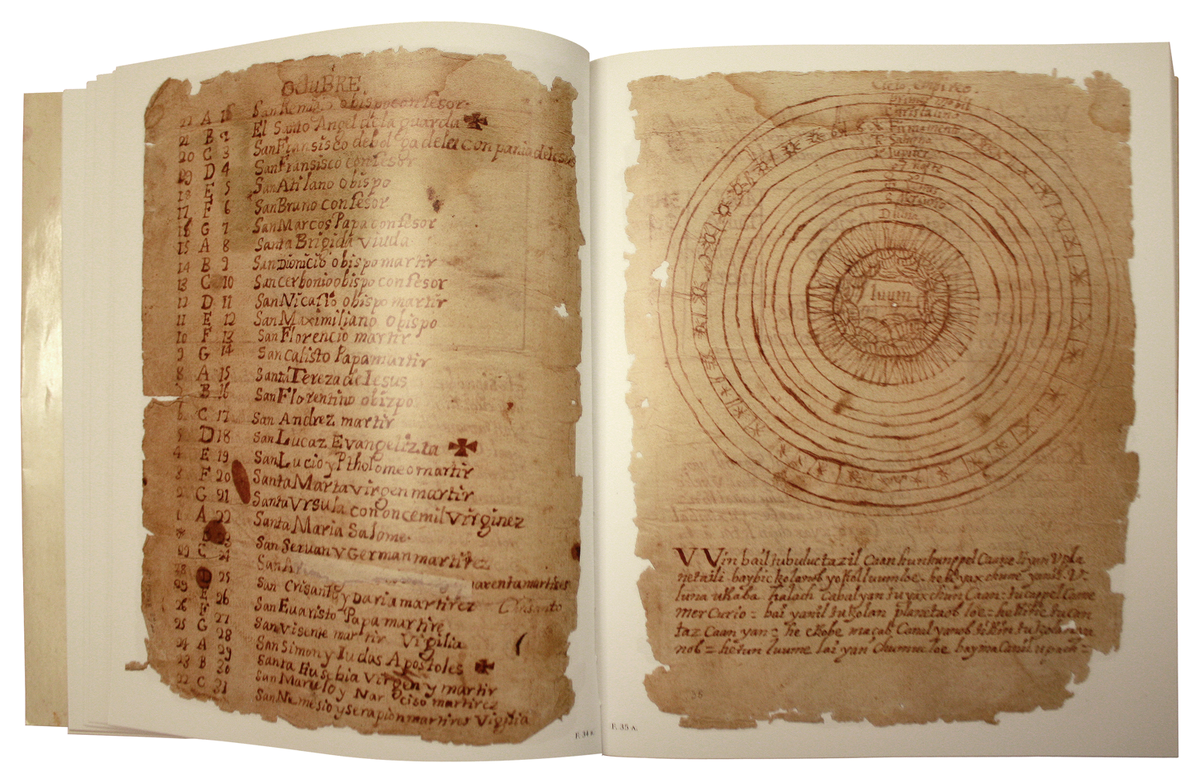 OctuBRE
21 A San Remi obispo confesor
21 B 2 El Santo Angel de la guarda
20 C 3 San Fransisco de bolpa de la conpania de
D 4 San Fransisco confesor
E 5 San Atilano obispo
17 F 6 San Bruno confesor
G 7 San Marcos Papa confesor
15 A 8 Santa Brigida viuda
14 B 9 San Dionicio obispo martir
13 C 10 San Cerbonio obispo confesor
12 D 11 San Nicasio obispo martir
11 E 12 San Maximiliano obispo
10 F 13 San Florencio martir
9 G 14 San Calisto Papa martir
8 A 15 Santa Tereza de Iesus
B 16 San Florentino obizpo
C 17 San Andrez martir
D 18 San Lucaz Evangelizta
4 E 19 San Lucio y Ptholomeo martir
F 20 Santa Marta virgen martir
G 21 Santa Vrsula con oncemil virginez
A 22 Santa Maria Salome
San Seruan y German martirez
San A
25 San Crisanto y Daria martirez Crisanto
E 26 San Euaristo Papa martir
25 G 27 San Visente martir Vigilia
24 A 28 San Simon y Iudas Apostoles
23 B 30 Santa Eusebia Virgen y martir
22 C 31 San Marulo y Narciso martirez
San Nemesio y Serapion martires Vigilia
F. 34 v.
Cielo Empireo
Primo Mobil
Cristalino
Firmamento
Saturno
Jupiter
Marte
Sol
Venus
Mercurio
Luna
luum
VVin bail tu buluctazil Caan hunhunppel Caane ti yan V pla
netaili bay bic kolanob yokol luum loe he ix yax chune yanil V
luna ukaba halach Cabal yan tu yax chun Caan = tu cappel Caane
mer Curio = bai yanil tu kolan planetaob loe = he kine tu can
taz Caan yan = he
nob = he tun luume lai yan chumuc loe bay ma Canil u pach =
35
F. 35 a.